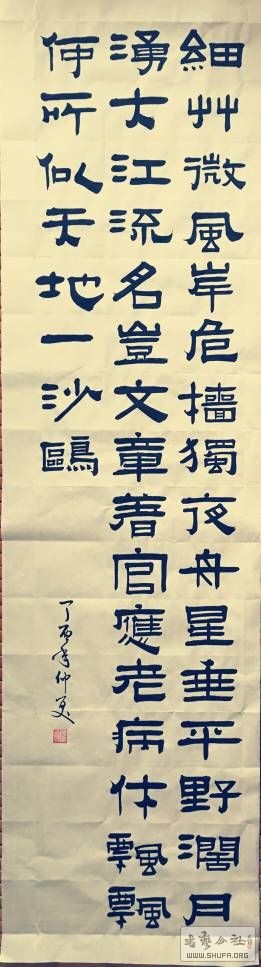 細艸微風岸危檣獨夜舟星垂平野濶月
湧大江流名豈文章著官應老病休飄飄
何所似天地一沙鷗
丁酉年仲夏
書藝公社
WWW.SHUFA.ORG